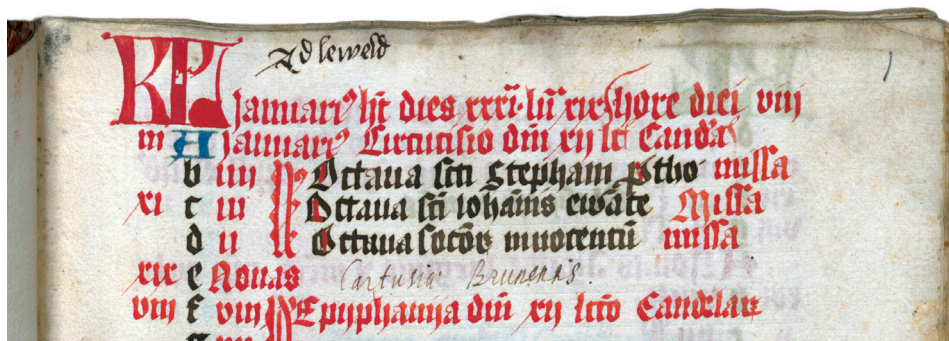 Ad leweld
KL Januariꝰ ht dies xxxi lu xxx hore diei viij
iii A Januarꝰ Circucisio dni xij lc Candel
b iiii Octaua scti Stephani ptho missa
xi c iii Octaua sti iohanis ewāte Missa
d ii Octuua sctor innocentū missa
xix e Nonas Cartusia Brunensis
viii f viii Epyphanija dni xij lcto Candelar